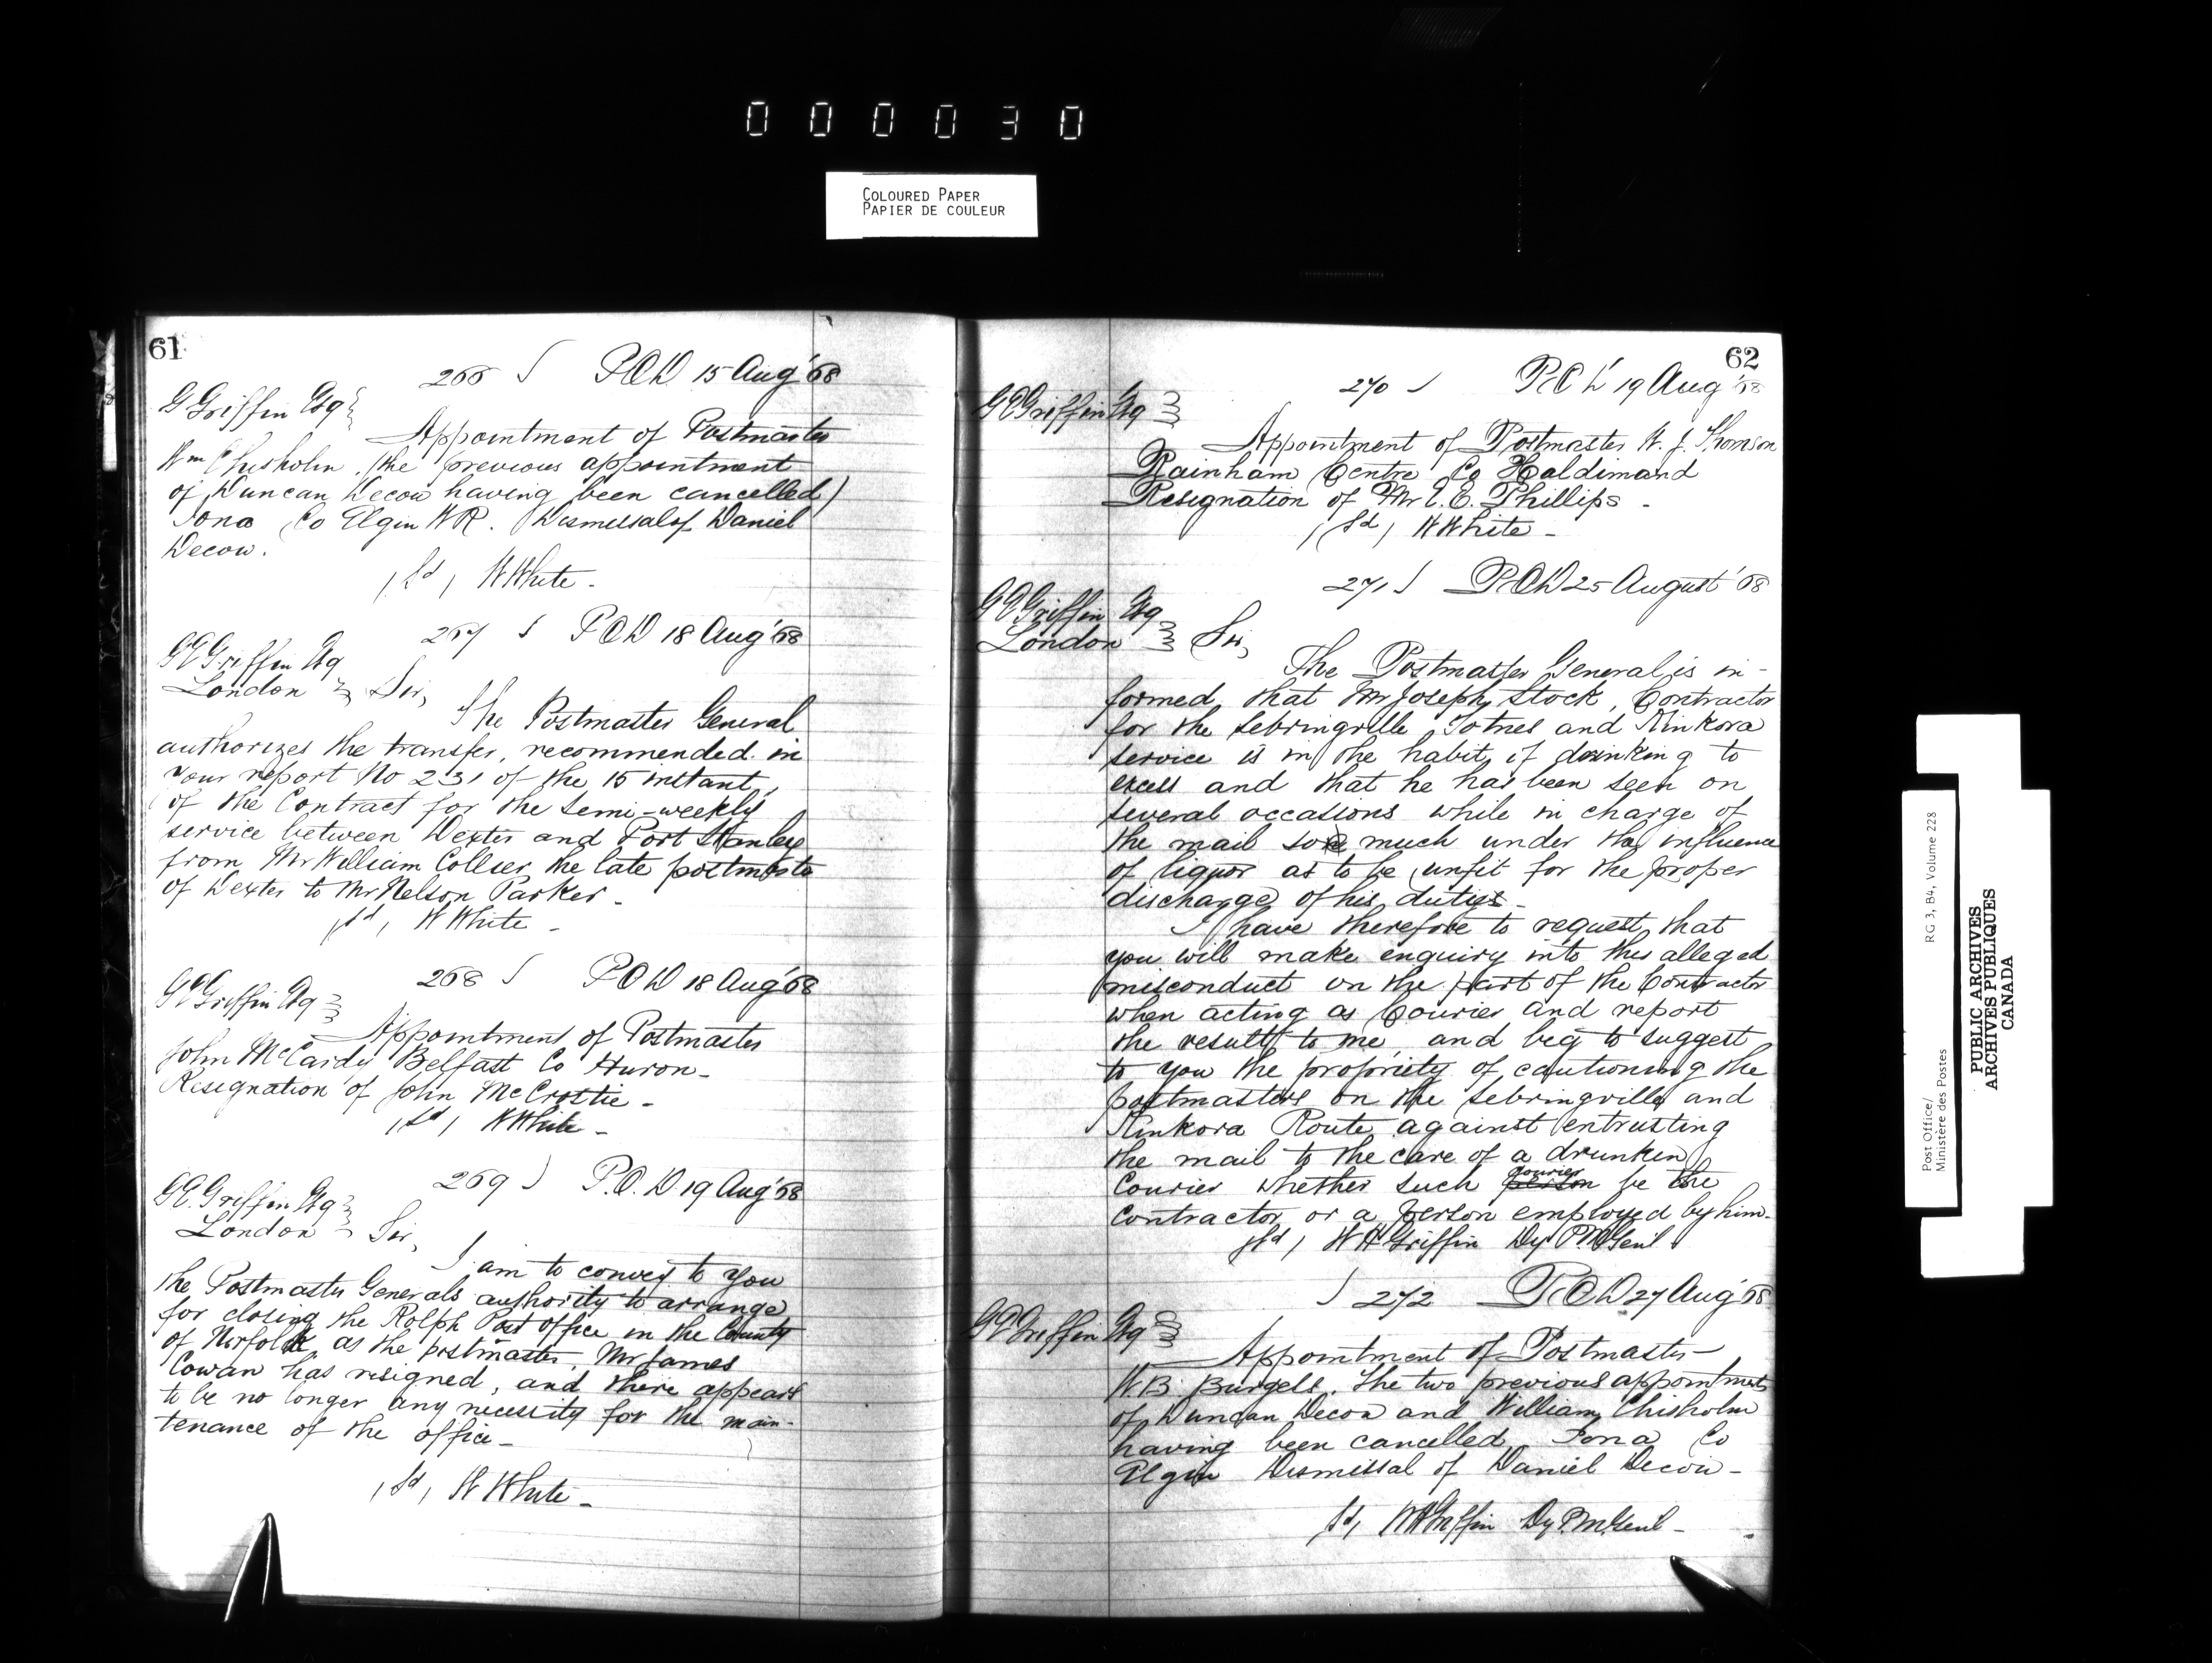 000030
COLOURED PAPER
PAPIER DE COULEUR
61
266 P.O.D 15 Aug '68
G Griffin Esq
Appointment of Postmaster
Wm Chisholm. (the previous appointment
of Duncan Decow having been cancelled)
Iona Co Elgin W.R. Dismissal of Daniel
Decow.
(sd) W White -
267 P.O.D 18 Aug '68
G E Griffin Esq
London Sir,
The Postmaster General
authorizes the transfer, recommended in
your report No 231 of the 15 instant,
of the Contract for the semi-weekly
service between Dexter and Port Stanley
from Mr William Collier the late postmaster
of Dexter to Mr Nelson Parker -
(sd) W White -
268 P.O.D 18 Aug '68
G E Griffin Esq
Appointment of Postmaster
John McCardy Belfast Co Huron -
Resignation of John McCrostie -
(sd) W White -
269 P.O.D 19 Aug '68
G E. Griffin Esq
London Sir,
I am to convey to you
the Postmaster Generals authority to arrange
for closing the Rolph Post Office in the County
of Norfolk as the postmaster, Mr James
Cowan has resigned, and there appears
to be no longer any necessity for the main-
tenance of the office -
(sd) W White -
62
270 P.O.D 19 Aug '68
G E Griffin Esq
Appointment of Postmaster W. J. Thomson
Rainham Centre Co Haldimand
Resignation of Mr E. E. Phillips -
(sd) W White -
271 P.O.D 25 August '68
G E Griffin Esq
London Sir,
The Postmaster General is in-
formed that Mr Joseph Stock, Contractor
for the Sebringville Totnes and Kinkora
service is in the habit of drinking to
excess and that he has been seen on
several occasions while in charge of
the mail so much under the influence
of liquor as to be unfit for the proper
discharge of his duties -
I have therefore to request that
you will make enquiry into this alleged
misconduct on the part of the Contractor
when acting as Courier and report
the result to me, and beg to suggest
to you the propriety of cautioning the
postmasters on the Sebringville and
Kinkora Route against entrusting
the mail to the care of a drunken
Courier whether such person courier be the
Contractor or a person employed by him -
(sd) W H Griffin Dy P.M Genl
272 P.O.D 27 Aug '68
G E Griffin Esq
Appointment of Postmaster -
W B Burgels. The two previous appointments
of Duncan Decow and William Chisholm
having been cancelled. Iona Co
Elgin Dismissal of Daniel Decow -
(sd) W H Griffin Dy P.M Genl -
Post Office/
Ministère des Postes
RG 3, B4, Volume 228
PUBLIC ARCHIVES
ARCHIVES PUBLIQUES
CANADA